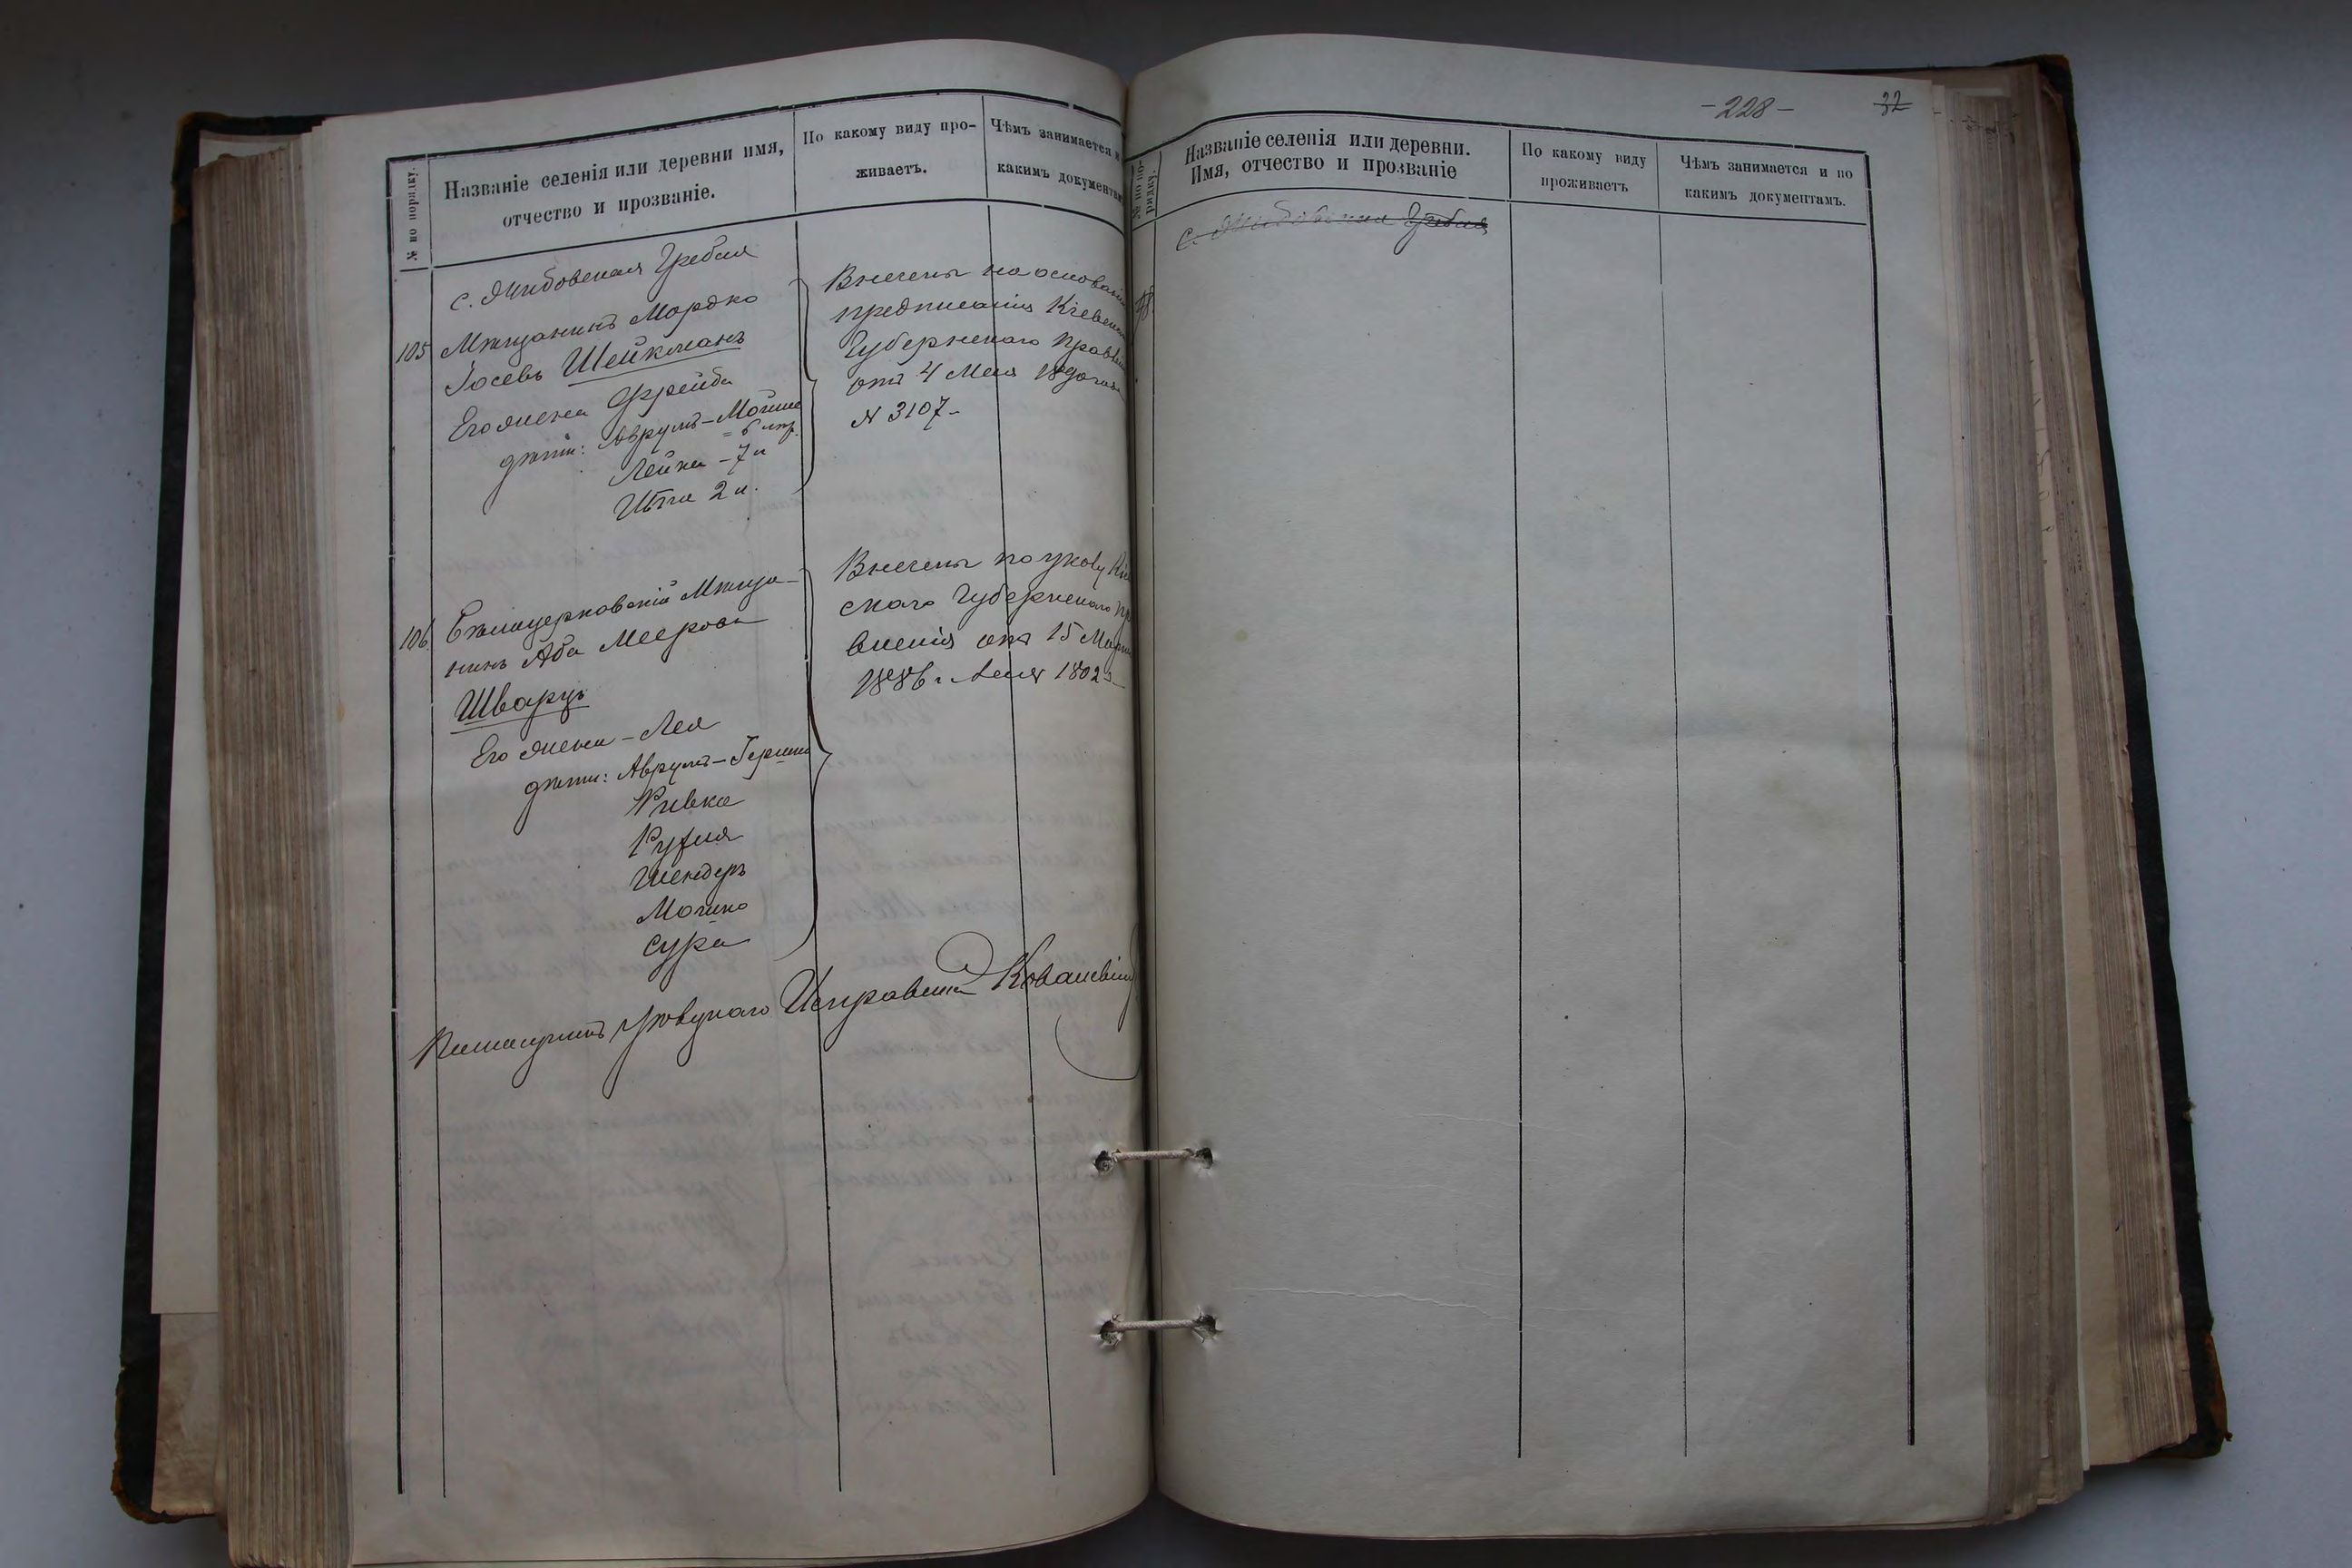 № по порядку.
Названіе селенія или деревни имя,
отчество и прозваніе.
По какому виду про-
живаетъ.
Чѣмъ занимается и
какимъ документам
с. Жидовская Гребля
105 Мѣщанинъ Мордко
Іосевъ Шейкманъ
Его жена Фрейда
дѣти: Аврумъ-Мошко
Лейка - 7 л
Итта 2 л.
Внесены на основаніи
предписанія Кіевскаго
Губернскаго Правленія
отъ 4 Мая
№ 3107-
106. Бѣлацерковскій Мѣща-
нинъ Аба Мееровъ
Шварцъ
Его жена - Лея
дѣти: Аврумъ-Гершко
Ривка
Рухля
Шендеръ
Мошко
Сура
Внесены по указу Кіев
скаго Губернскаго Пра
вленія отъ 15 Марта
1886 г. за № 1802
Помощникъ Уѣзднаго Исправника Ковалевскій
-228-
32
№ по по-
рядку.
Названіе селенія или деревни.
Имя, отчество и прозваніе
По какому виду
проживаетъ
Чѣмъ занимается и по
какимъ документамъ.
с. Жидовская Гребля